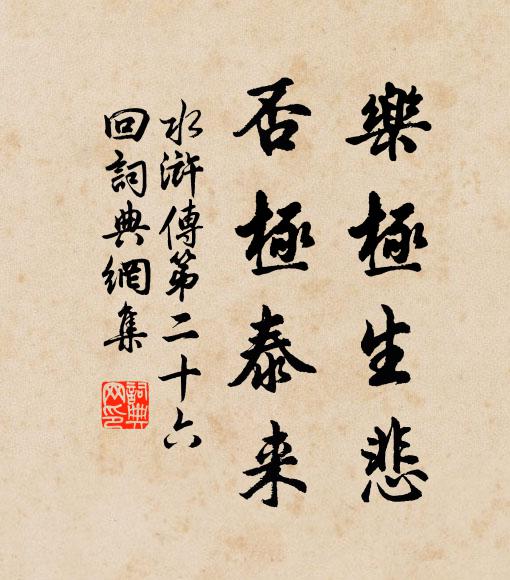 樂極生悲
否極泰来
水滸傳第二十六
回詞典網集
詞典
网印